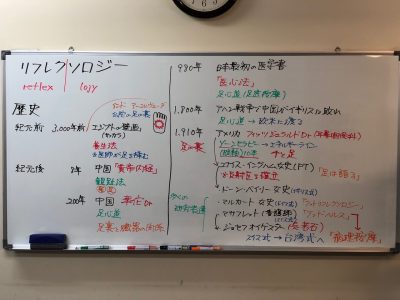 リフレクソロジー
reflex logy
歴史
インド アーユルヴェーダ
紀元前 3,000年前 エジプトの壁画
(サッカラ)
養生法
紀元後 2年 中国「黄帝内経」
観趾法
200年 中国 華佗Dr
足心道
足裏と臓器の関係
980年 日本最初の医学書
「医心方」
足心道(足底按摩)
1,800年 アヘン戦争で中国がイギリスに敗れ
足心道→欧米に渡る
1,910年 アメリカ フィッツジェラルドDr(耳鼻咽喉科)
足の裏 ゾーンセラピー→エネルギーライン
10本 手と足
ユナイス・イングハム女史(PT)
反射区を確立 「足は語る」
ドーン・ベイリー女史(イギリス式)
マルカート女史 「フットリフレクソロジー」
マサフレット(看護師) 「フットヘルス」
ジョセフオイグスター
スイス式→台湾式へ「病理按摩」